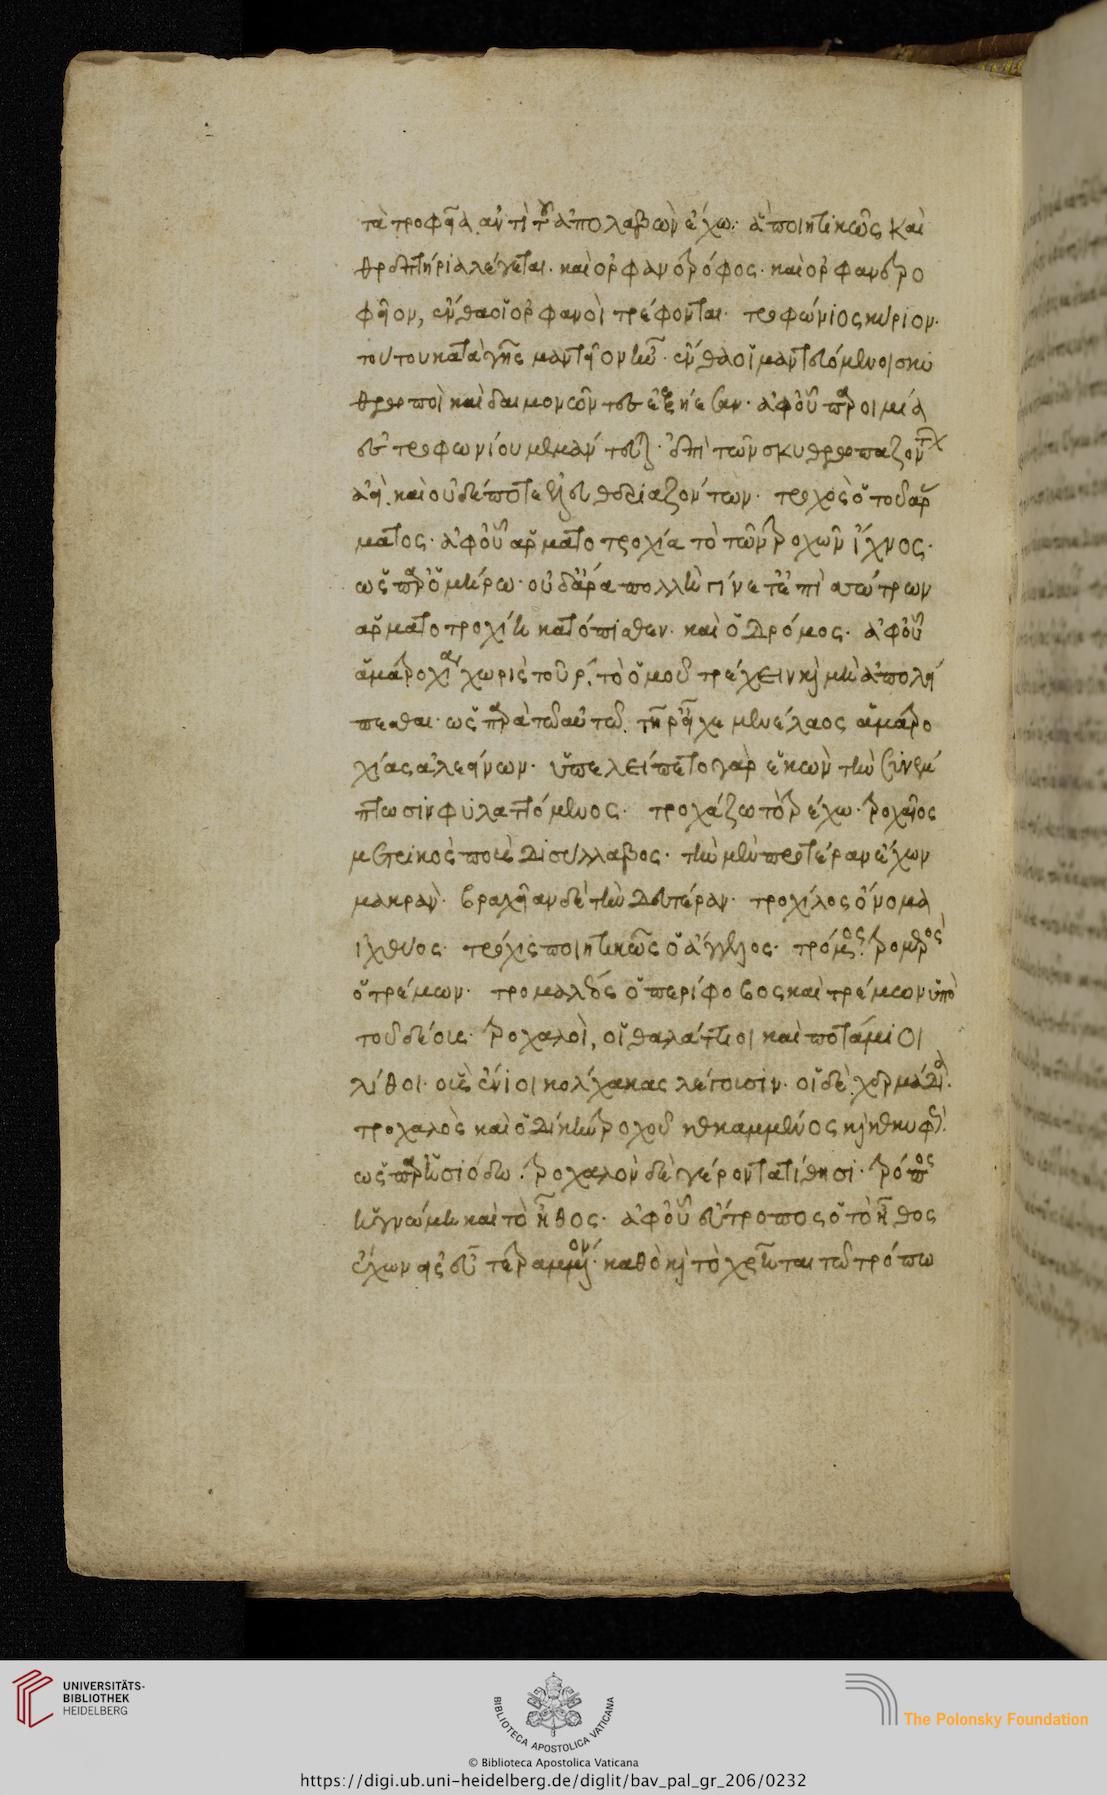 τὰ τροφεῖα ἀντὶ τοῦ ἀπολαβὼν ἔχω· ἃ ποιητικῶς καὶ
θρεπτήρια λέγεται· καὶ ὀρφανοτρόφος· καὶ ὀρφανοτρο
φεῖον, ἔνθα οἱ ὀρφανοὶ τρέφονται· τροφώνιος κύριον·
τούτου κατὰ γῆς μαντεῖον ἦν· ἔνθα οἱ μαντευόμενοι σκυ
θρωποὶ καὶ δαιμονῶντες ἐξήεσαν· ἀφ' οὗ παροιμία
τροφωνίου μεμάντευται· ἐπὶ τῶν σκυθρωπαζόντων
ἀεὶ. καὶ οὐδέποτε ενθουσιαζόντων· τροχὸς ὁ τοῦ ἅρ
ματος· ἀφ' οὗ ἁρματοτροχία τὸ τῶν τροχῶν ἴχνος·
ὡς παρ' ὁμήρω· οὐδ' ἄρα πολλὴ γίνετ' ἐπὶ σώτρων
ἁρματοτροχιὴ κατόπισθεν· καὶ ὁ δρόμος· ἀφ' οὗ
ἁματροχία χωρὶς τοῦ ρ, τὸ ὁμοῦ τρέχειν καὶ μὴ ἀπολεί
πεσθαι· ὡς παρὰ τῶ αὐτῶ. τῇ ῥ' εἶχε μενέλαος ἁματρο
χίας ἀλεείνων· ὑπελείπετο γὰρ ἑκὼν τὴν συνέμ
πτωσιν φυλαττόμενος· τροχάζω τὸ τρέχω· τροχαῖος
μετρικὸς ποὺς δισύλλαβος· τὴν μὲν προτέραν ἔχων
μακρὰν· βραχεῖαν δὲ τὴν δευτέραν· τροχίλος ὄνομα
ἰχθύος· τρόχις ποιητικῶς ὁ ἄγγελος· τρόμος. τρομερὸς
ὁ τρέμων· τρομαλέος ὁ περίφοβος καὶ τρέμων ὑπὸ
τοῦ δέους· τροχαλοὶ, οἱ θαλάττιοι καὶ ποτάμιοι
λίθοι· οὓς ἔνιοι κόχλακας λέγουσιν· οἱ δὲ χερμάδια.
τροχαλὸς καὶ ὁ δίκην τροχοῦ κεκαμμένος καὶ κεκυφώς.
ὡς παρ' ἡσιόδω. τροχαλὸν δὲ γέροντα τίθησι· τρόπος
ἡ γνώμη καὶ τὸ ἦθος· ἀφ' οὗ εὔτροπος ὁ τὸ ἦθος
ἔχων εἰς εὖ τετραμμένον· καθὸ καὶ τὸ χρῆται τῶ τρόπω
UNIVERSITÄTS-
BIBLIOTHEK
HEIDELBERG
BIBLIOTECA APOSTOLICA VATICANA
The Polonsky Foundation
© Biblioteca Apostolica Vaticana
https://digi.ub.uni-heidelberg.de/diglit/bav_pal_gr_206/0232